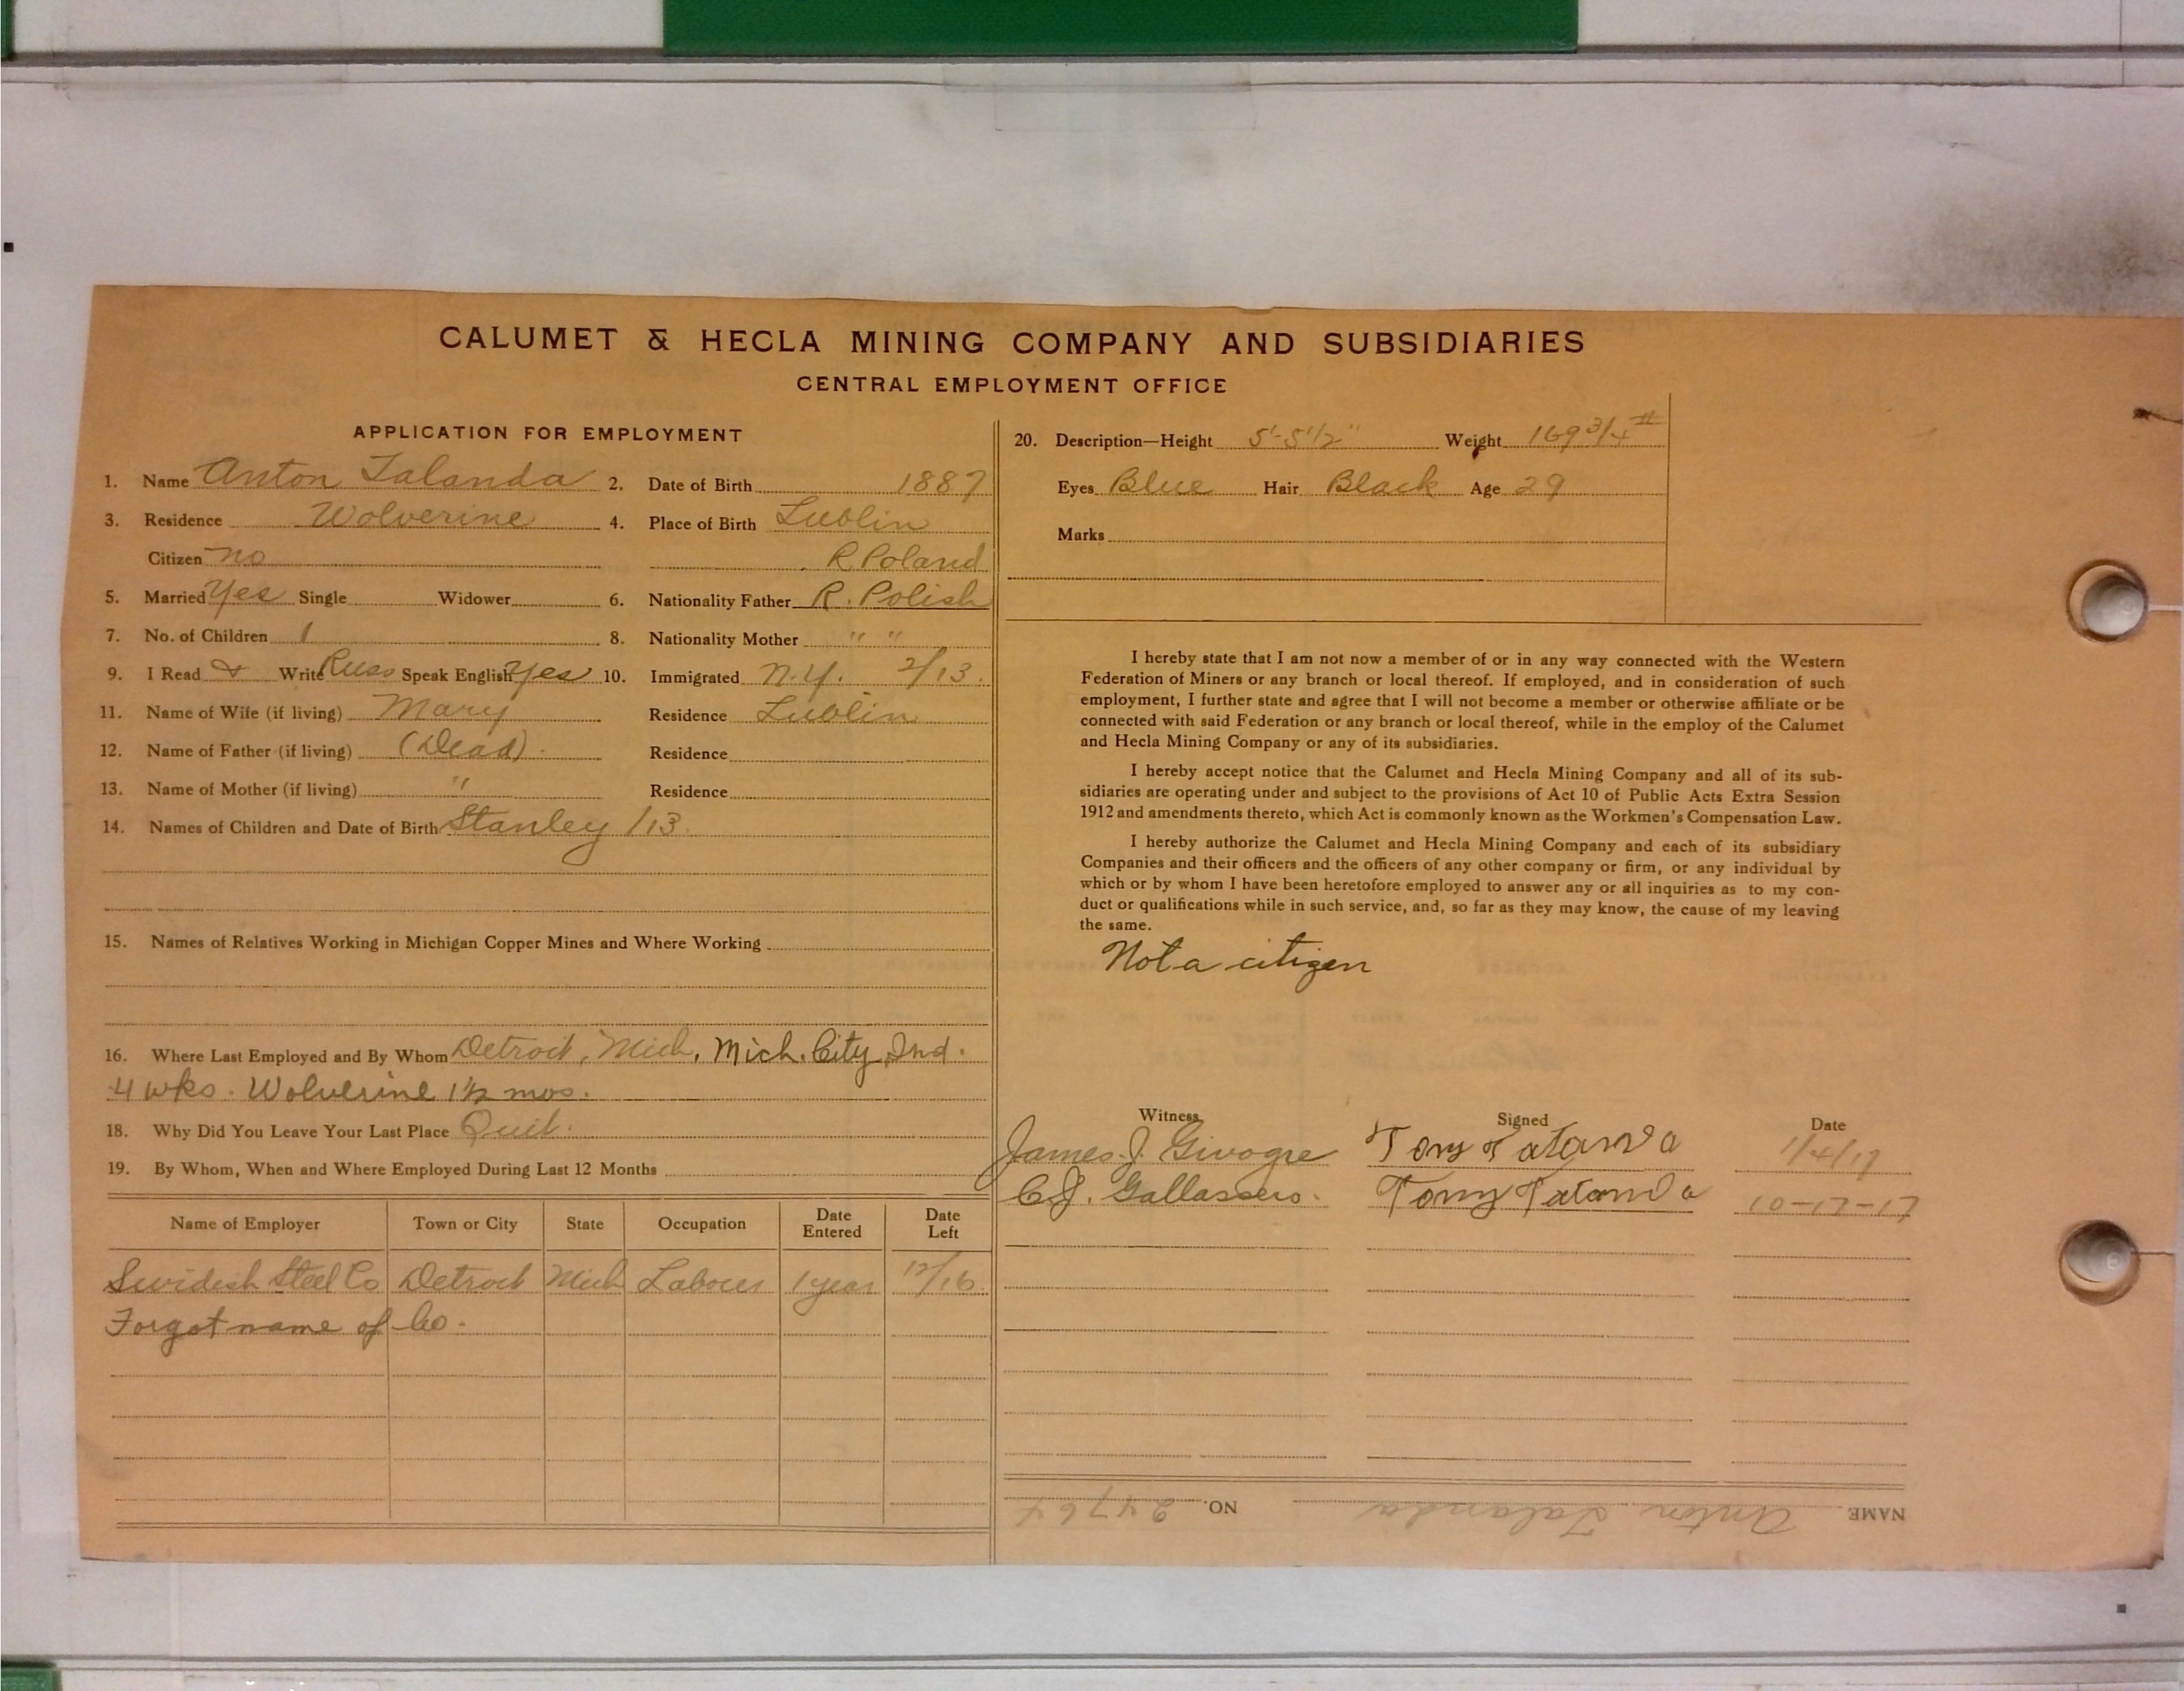 CALUMET & HECLA MINING COMPANY AND SUBSIDIARIES
CENTRAL EMPLOYMENT OFFICE
APPLICATION FOR EMPLOYMENT
1. Name Anton Talanda 2. Date of Birth 1887
3. Residence Wolverine 4. Place of Birth Lublin
Citizen no R Poland
5. Married Yes Single Widower 6. Nationality Father R. Polish
7. No. of Children 1 8. Nationality Mother " "
9. I Read & Write Russ Speak English Yes 10. Immigrated N.Y. 2/13.
11. Name of Wife (if living) Mary Residence Lublin
12. Name of Father (if living) (Dead). Residence
13. Name of Mother (if living) " Residence
14. Names of Children and Date of Birth Stanley /13.
15. Names of Relatives Working in Michigan Copper Mines and Where Working
16. Where Last Employed and By Whom Detroit, Mich, Mich. City, Ind.
4 wks. Wolverine 1½ mos.
18. Why Did You Leave Your Last Place Quit.
19. By Whom, When and Where Employed During Last 12 Months
Name of Employer Town or City State Occupation Date Entered Date Left
Swidish Steel Co Detroit Mich Laborer 1 year 12/16.
Forgot name of Co.
20. Description—Height 5'-5½" Weight 169¾ #
Eyes Blue Hair Black Age 29
Marks
I hereby state that I am not now a member of or in any way connected with the Western
Federation of Miners or any branch or local thereof. If employed, and in consideration of such
employment, I further state and agree that I will not become a member or otherwise affiliate or be
connected with said Federation or any branch or local thereof, while in the employ of the Calumet
and Hecla Mining Company or any of its subsidiaries.
I hereby accept notice that the Calumet and Hecla Mining Company and all of its sub-
sidiaries are operating under and subject to the provisions of Act 10 of Public Acts Extra Session
1912 and amendments thereto, which Act is commonly known as the Workmen's Compensation Law.
I hereby authorize the Calumet and Hecla Mining Company and each of its subsidiary
Companies and their officers and the officers of any other company or firm, or any individual by
which or by whom I have been heretofore employed to answer any or all inquiries as to my con-
duct or qualifications while in such service, and, so far as they may know, the cause of my leaving
the same.
Not a citizen
Witness Signed Date
James J. Givogre Tony Talanda 1/4/17
C.J. Gallassero. Tony Talanda 10-17-17
NAME Anton Talanda NO. 24764